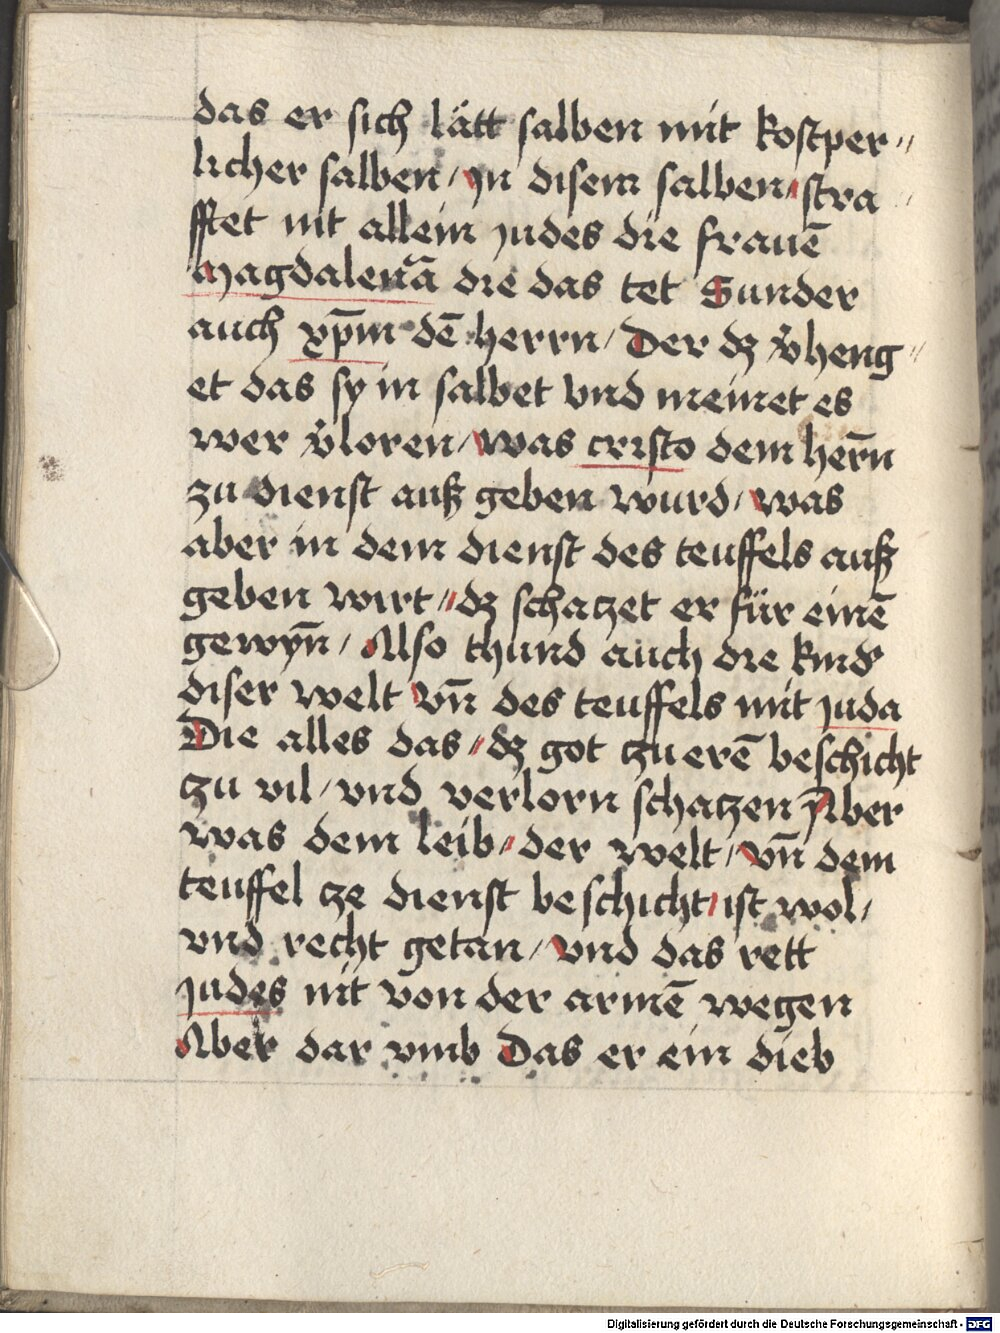 das er sich lätt salben mit kostper〃
licher salben / In disem salben / stra〃
fftet nit allein judes die frauē
Magdalenā die das tet Sunder
auch xp̄m dē herrn / Der dz v̉heng〃
et das sy in salbet vnd meinet es
wer v̉loren / was cristo dem herñ
zu dienst auß geben wurd / was
aber in dem dienst des teuffels auß
geben wirt // dz schatzet er für einē
gewyn̄ / Also thund auch die kind̉
diser welt vn̄ des teuffels mit juda
Die alles das / dz got tzu erē beschicht
tzu vil / vnd verlorn schatzen / Aber
was dem leib / der welt / vn̄ dem
teuffel tze dienst beschicht / ist wol /
vnd recht getan / vnd das rett
judes nit von der armē wegen
Aber dar vmb Das er ein dieb
Digitalisierung gefördert durch die Deutsche Forschungsgemeinschaft - DFG